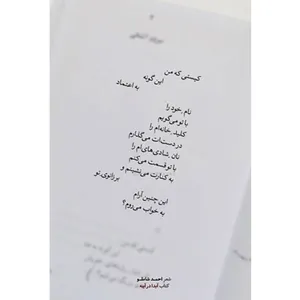 کیستی که من
این گونه
به اعتماد
نام ِ خود را
با تو می‌گویم
کلید ِ خانه‌ام را
در دست‌ات می‌گذارم
نان ِ شادی‌های‌ام را
با تو قسمت می‌کنم
به کنارت می‌نشینم و
بر زانوی ِ تو
این چنین آرام
به خواب می‌روم؟
شعر احمد شاملو
کتاب آیدا در آینه